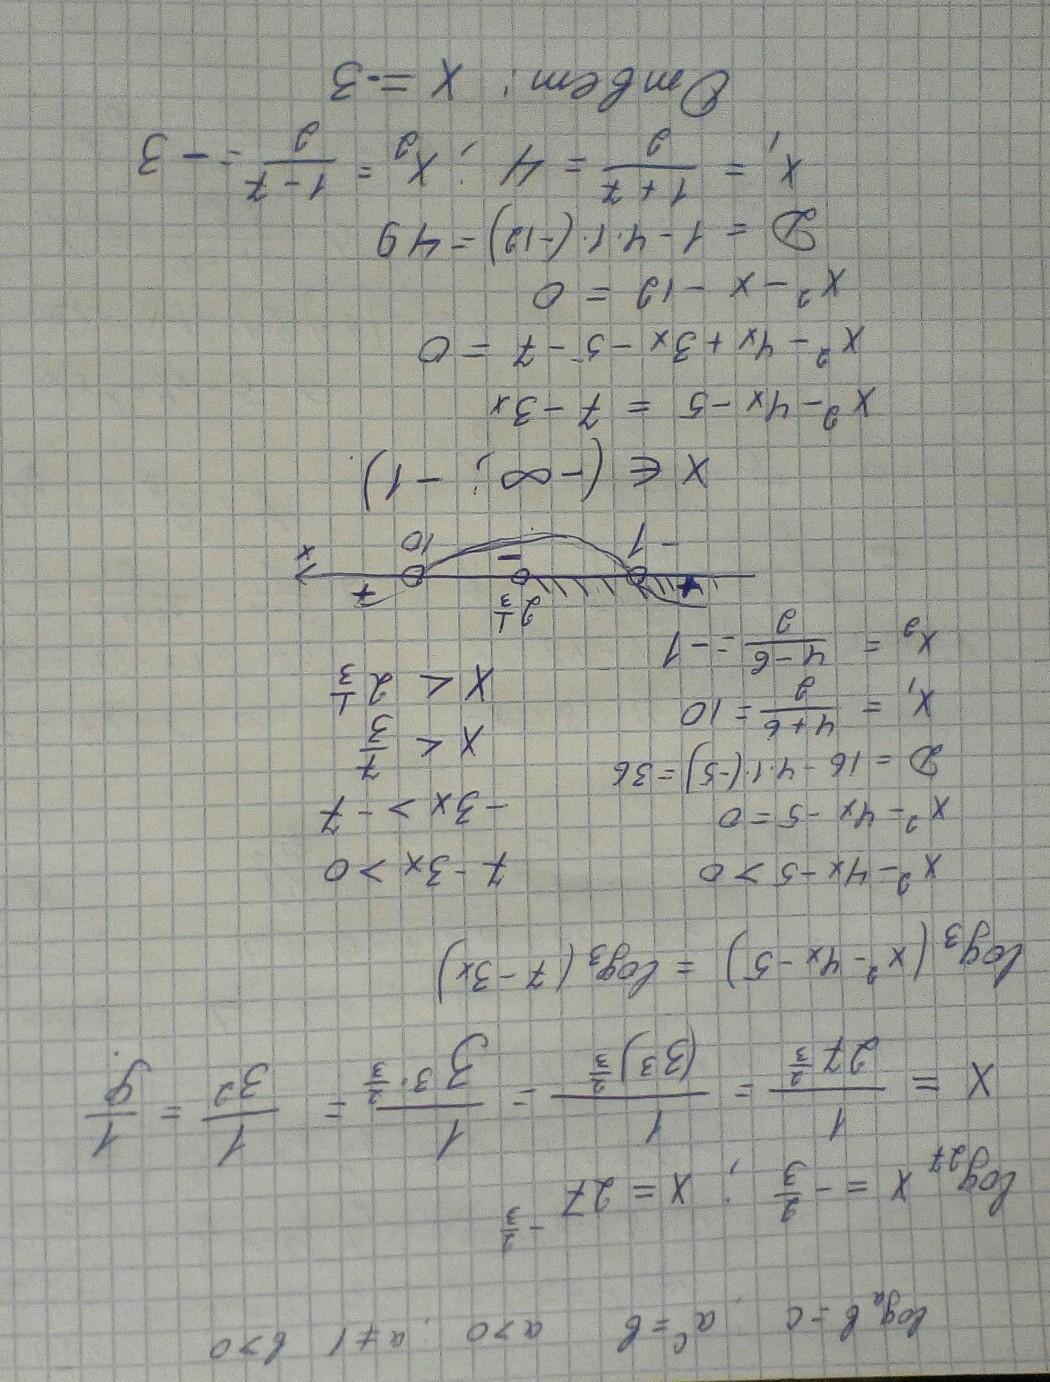 logₐ b = c   aᶜ = b   a > 0   a ≠ 1   b > 0
log₂₇ x = -2/3 ; x = 27^(-2/3)
x = 1/27^(2/3) = 1/(3³)^(2/3) = 1/3^(3·2/3) = 1/3² = 1/9
log₃ (x² - 4x - 5) = log₃ (7 - 3x)
x² - 4x - 5 > 0   7 - 3x > 0
x² - 4x - 5 = 0   -3x > -7
D = 16 - 4·1·(-5) = 36   x < 7/3
x₁ = (4+6)/2 = 10   x < 2 1/3
x₂ = (4-6)/2 = -1
+ - +
-1   2 1/3   10   x
x ∈ (-∞ ; -1)
x² - 4x - 5 = 7 - 3x
x² - 4x + 3x - 5 - 7 = 0
x² - x - 12 = 0
D = 1 - 4·1·(-12) = 49
x₁ = (1+7)/2 = 4 ; x₂ = (1-7)/2 = -3
Ответ: x = -3